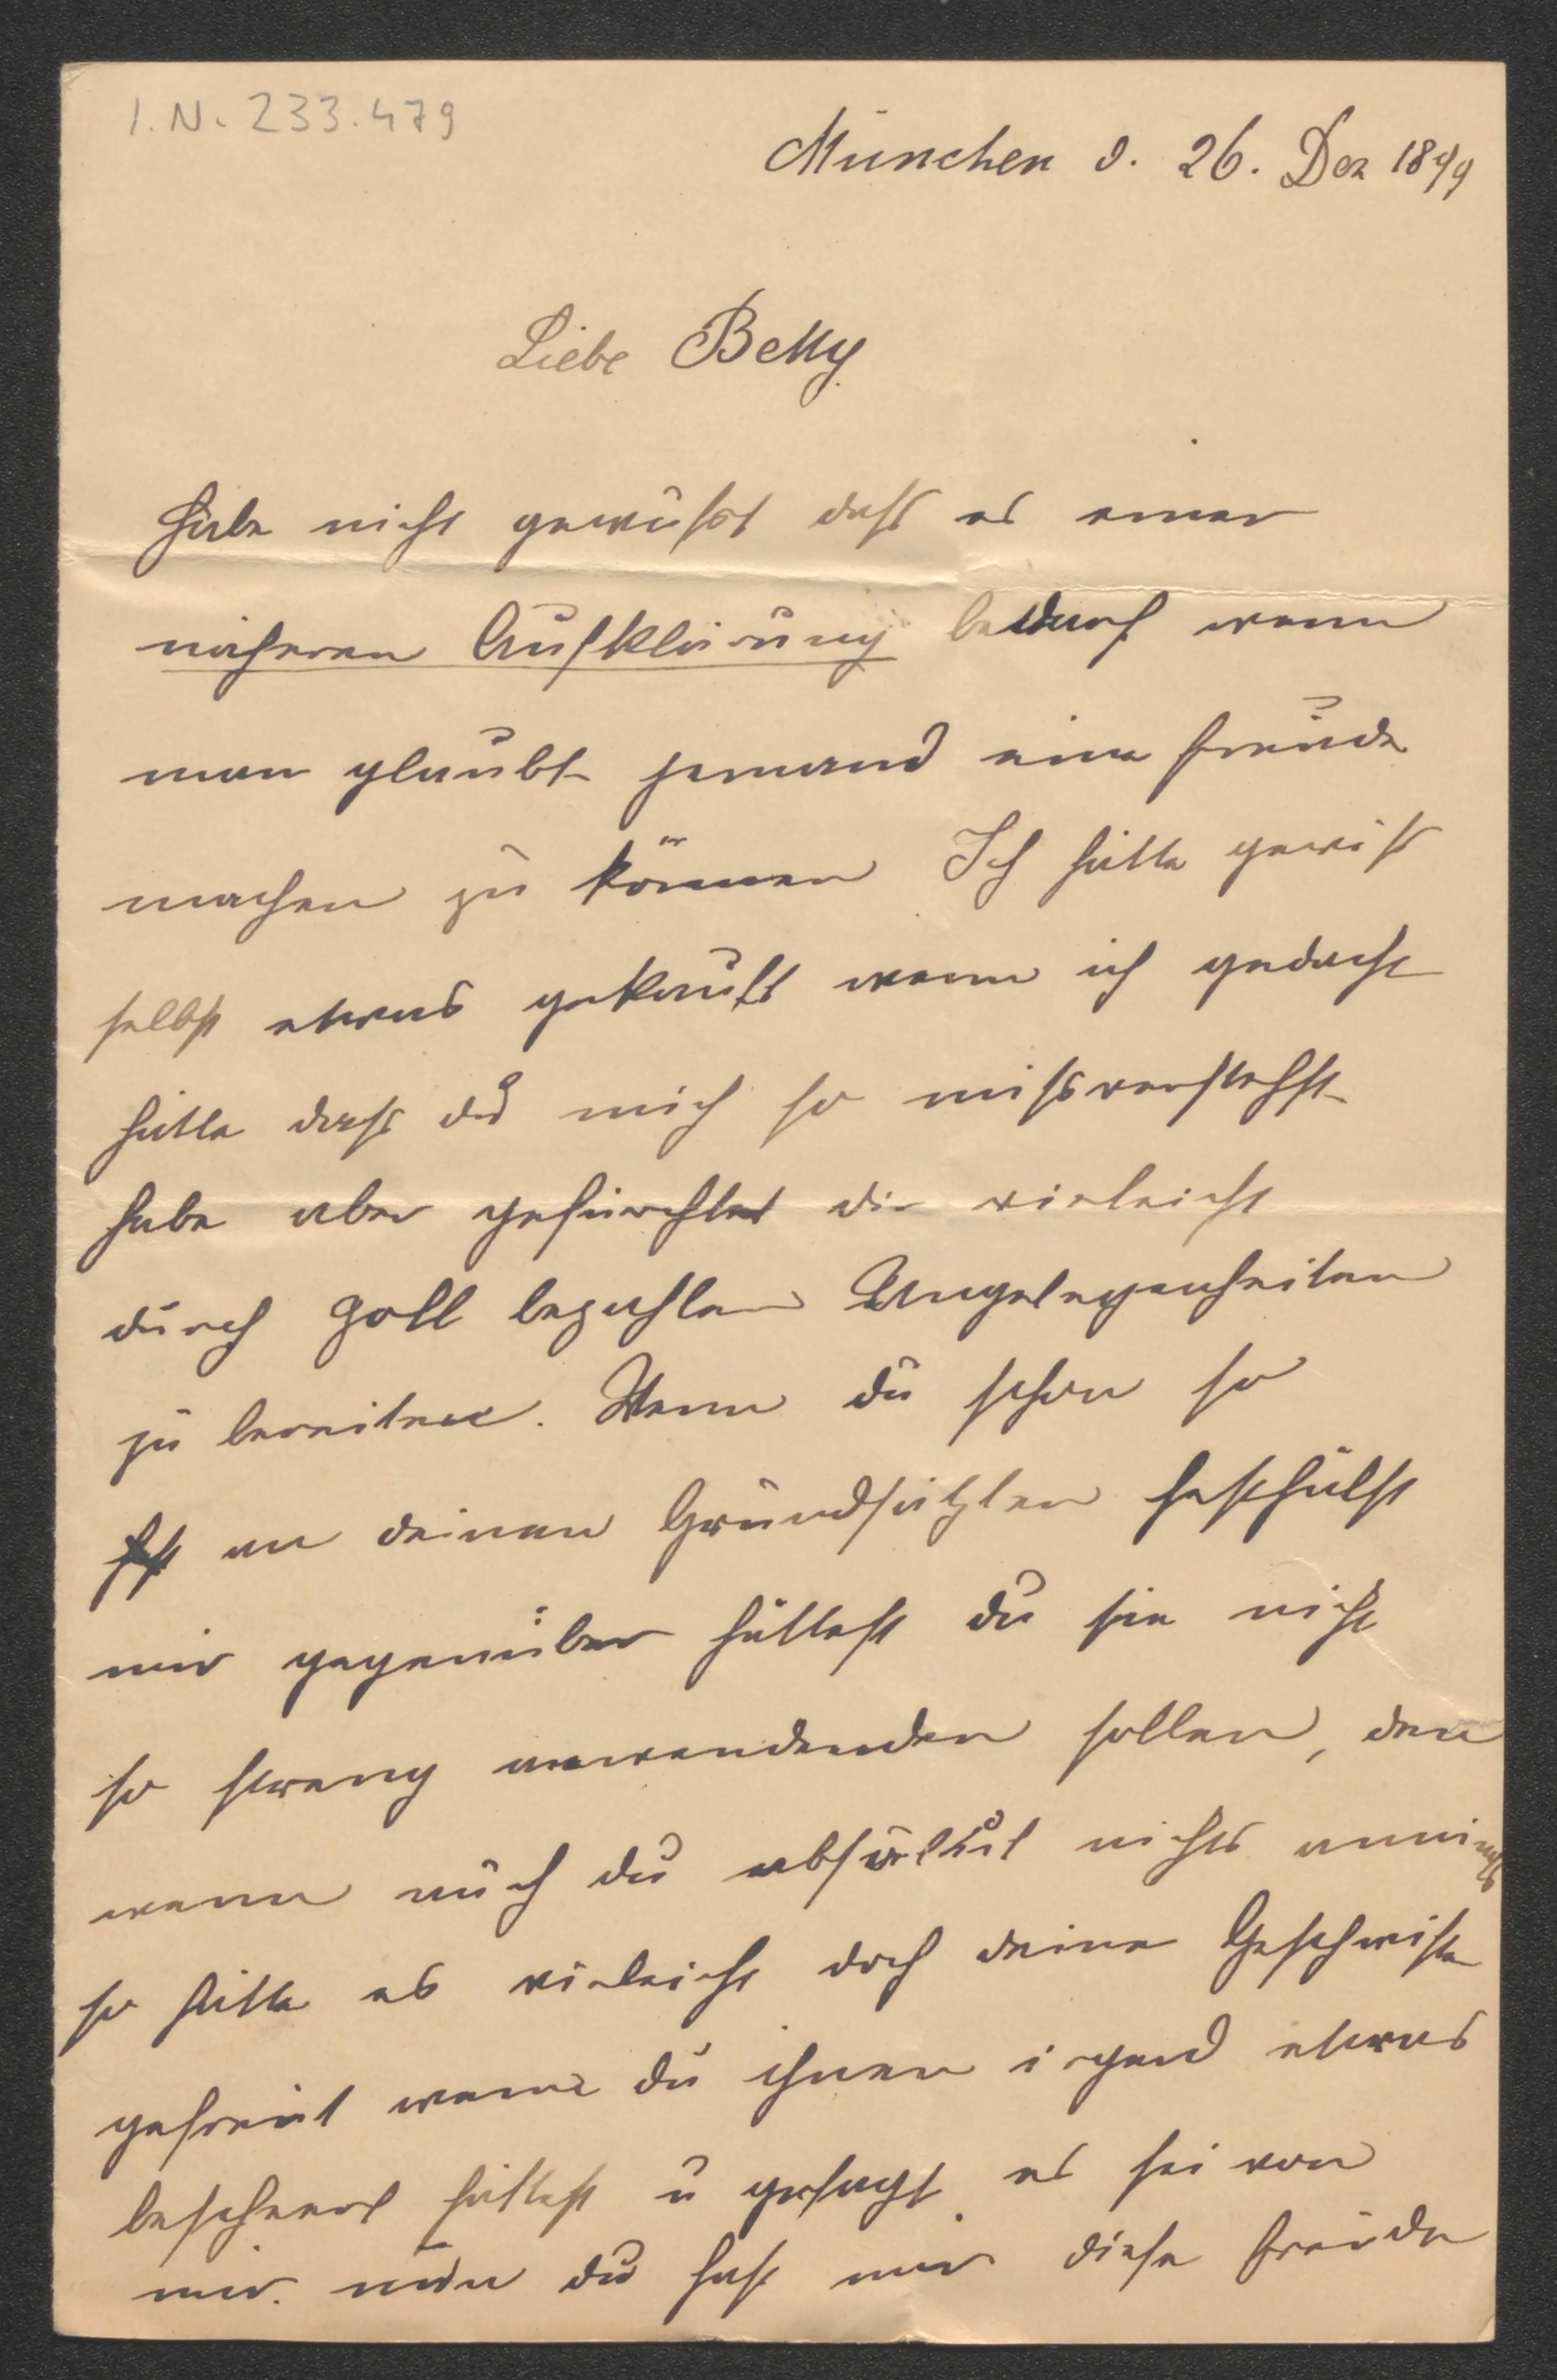 I.N. 233.479
München d. 26. Dez 1899
Liebe Betty
Habe nicht gewußt daß es einer
näheren Aufklärung bedarf wenn
man glaubt jemand eine Freude
machen zu können Ich hätte gewiß
selbst etwas gekauft wenn ich gedacht
hätte dass du mich so missverstehst
habe aber gefürchtet dir vieleicht
durch Zoll bezahlen Ungelegenheiten
zu bereiten. Wenn du schon so
an deinen Grundsätzten festhälst
mir gegenüber hättest du sie nicht
so streng anwendenden sollen, den
wenn auch du absulut nichts annimst
so hätte es vieleicht doch deine Geschwister
gefreut wenn du ihnen irgend etwas
bescheert hättest u gesagt es sei von
mir. nun du hast mir diese Freude